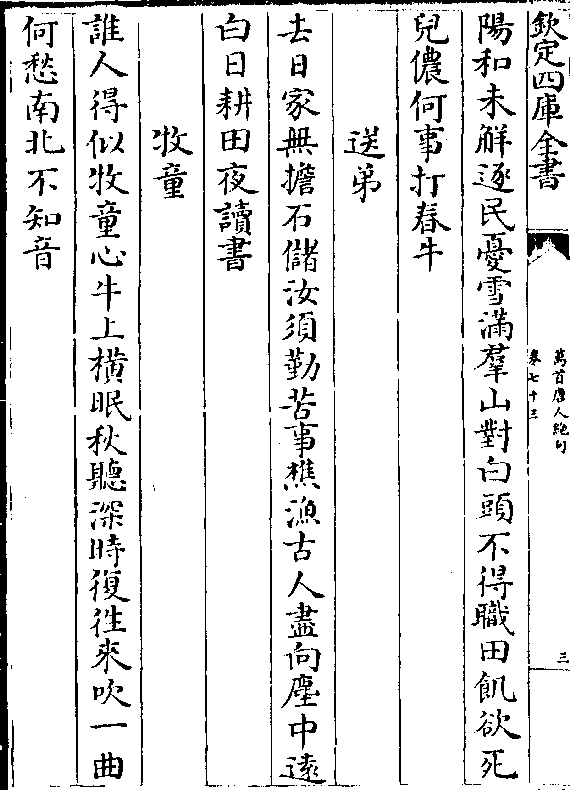 欽定四庫全書
萬首唐人絶句
卷七十三
三
陽和未解逐民憂雪滿羣山對白頭不得職田飢欲死
兒儂何事打春牛
送弟
去日家無擔石儲汝須勤苦事樵漁古人盡向塵中遠
白日耕田夜讀書
牧童
誰人得似牧童心牛上横眠秋聽深時復往來吹一曲
何愁南北不知音